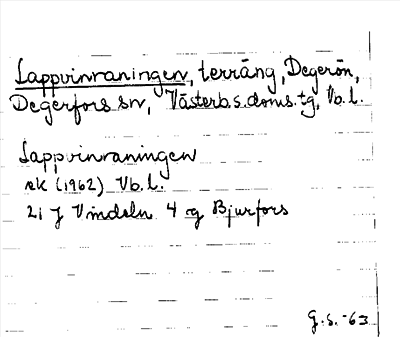 Lappvinraningen, terräng, Degerön,
Degerfors sn, Västerb. s. doms. tg, Vb. l.
Lappvinraningen
ek (1962) Vb. l.
21 J Vindeln 4 g Bjurfors
G. S. -63